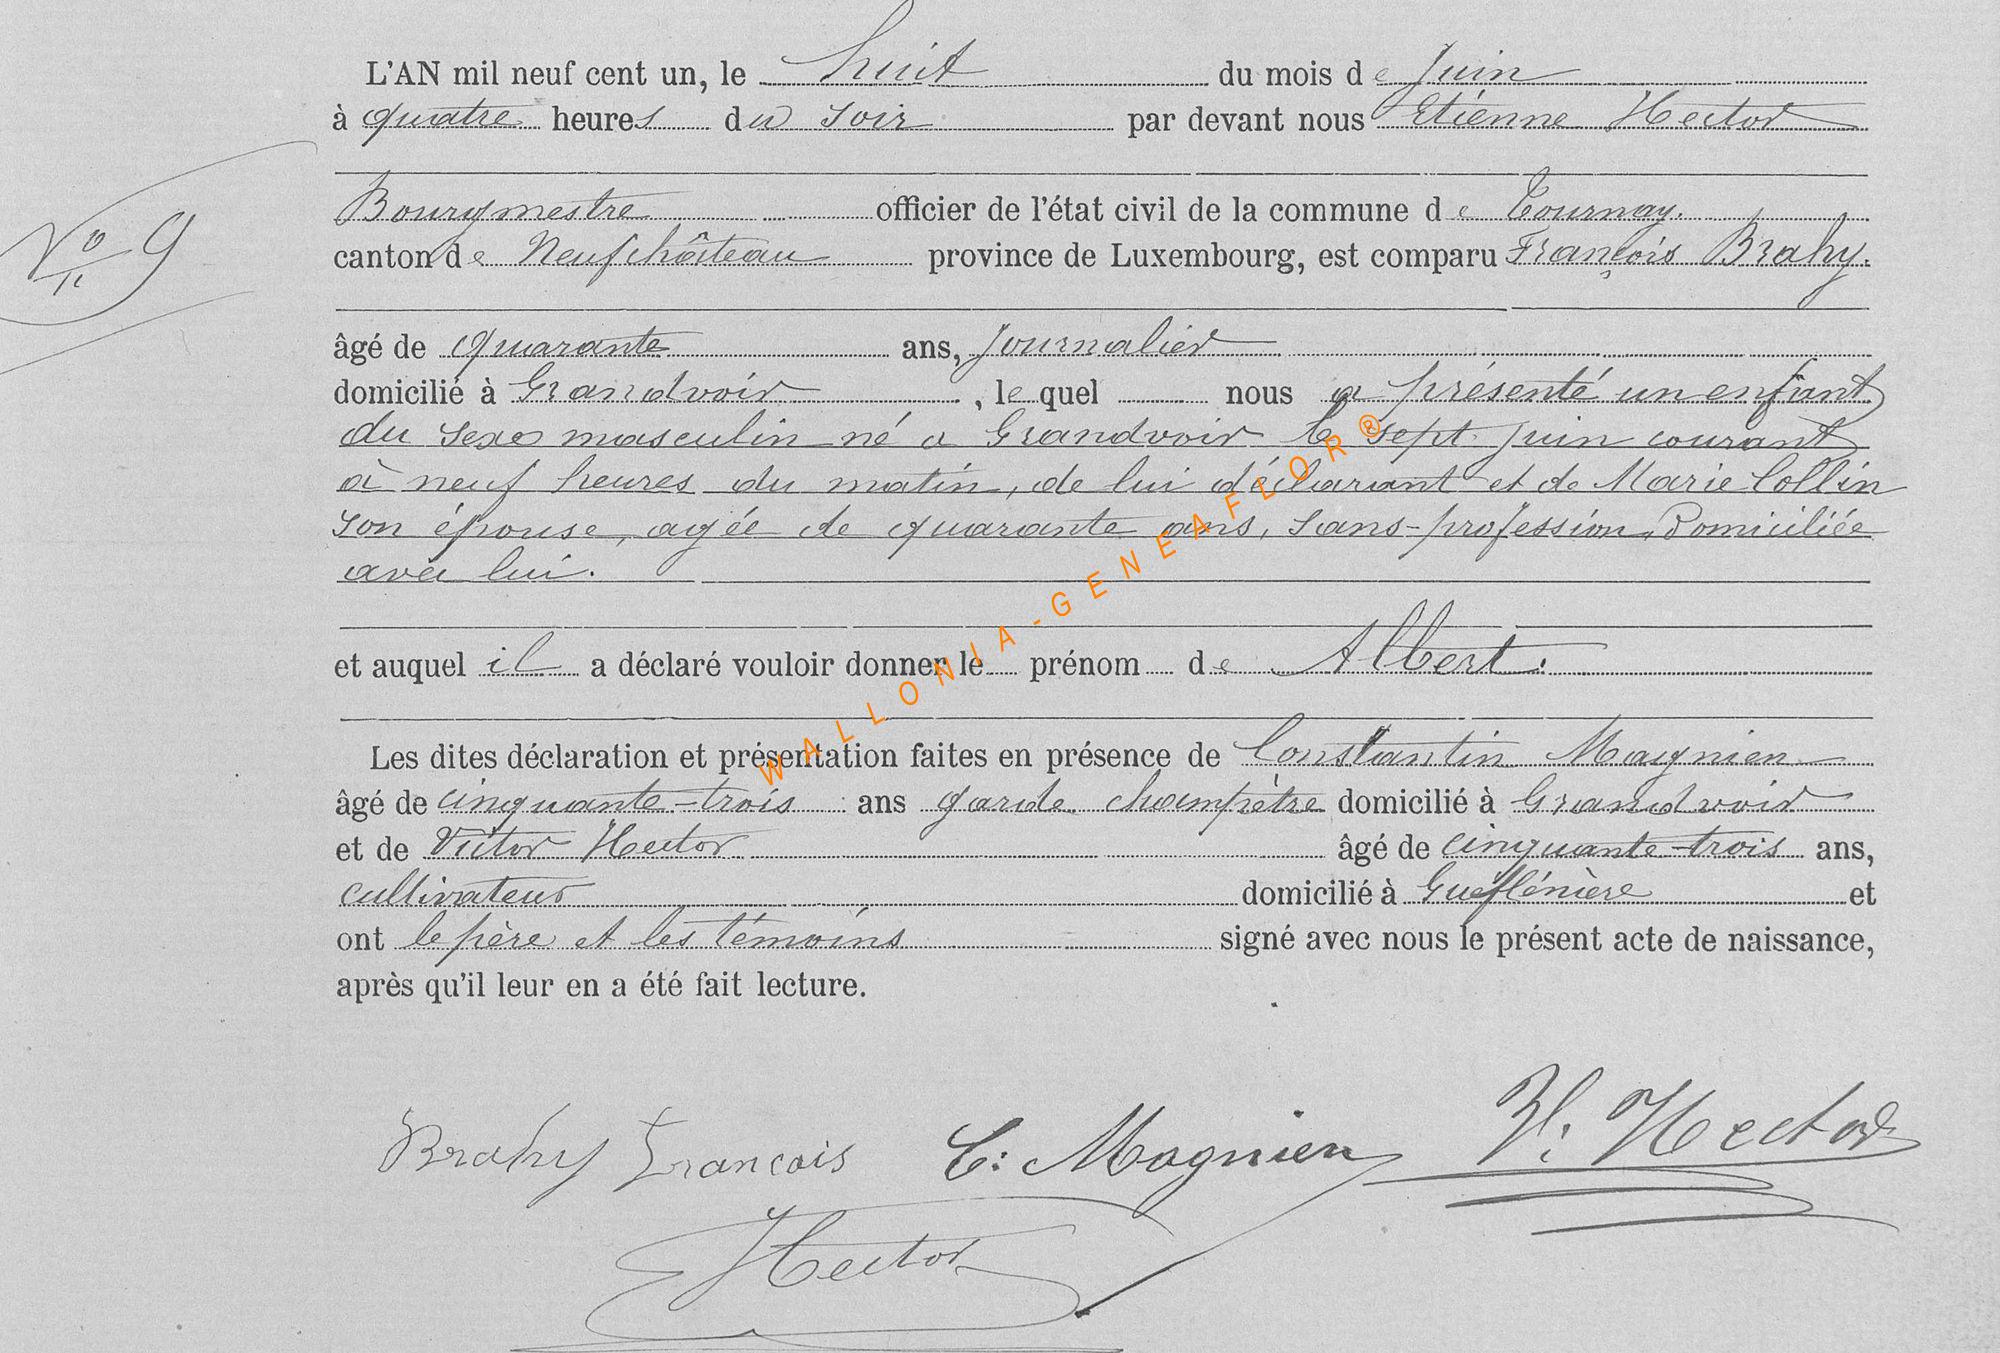 L'AN mil neuf cent un, le huit du mois de Juin
à quatre heures du soir par devant nous Etienne Hector
Bourgmestre officier de l'état civil de la commune de Tournay.
N° 9
canton de Neufchâteau province de Luxembourg, est comparu François Brahy.
âgé de quarante ans, journalier
domicilié à Grandvoir, lequel nous a présenté un enfant
du sexe masculin né à Grandvoir le sept juin courant
à neuf heures du matin, de lui déclarant et de Marie Collin
son épouse, agée de quarante ans, sans-profession, Domiciliée
avec lui.
et auquel il a déclaré vouloir donner le prénom de Albert.
Les dites déclaration et présentation faites en présence de Constantin Magnien
âgé de cinquante-trois ans garde champêtre domicilié à Grandvoir
et de Victor Hector âgé de cinquante-trois ans,
cultivateur domicilié à et
ont le père et les témoins signé avec nous le présent acte de naissance,
après qu'il leur en a été fait lecture.
WALLONIA-GENEAFLOR®
Brahy François C: Magnien V: Hector
Hector